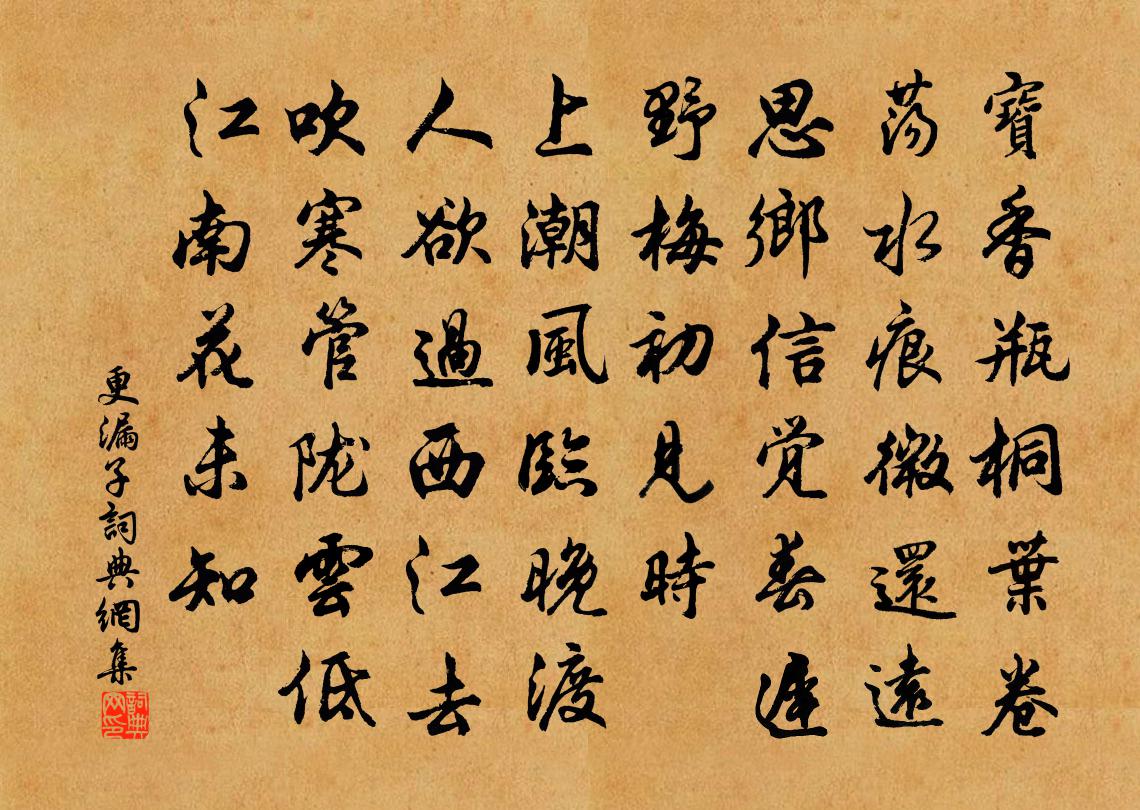 寶香瓶桐葉卷
蕩水痕微還遠
思鄉信覺春遲
野梅初見時
上潮風臨晚渡
人欲過西江去
吹寒管陇雲低
江南花未知
更漏子詞典網集
詞典网印